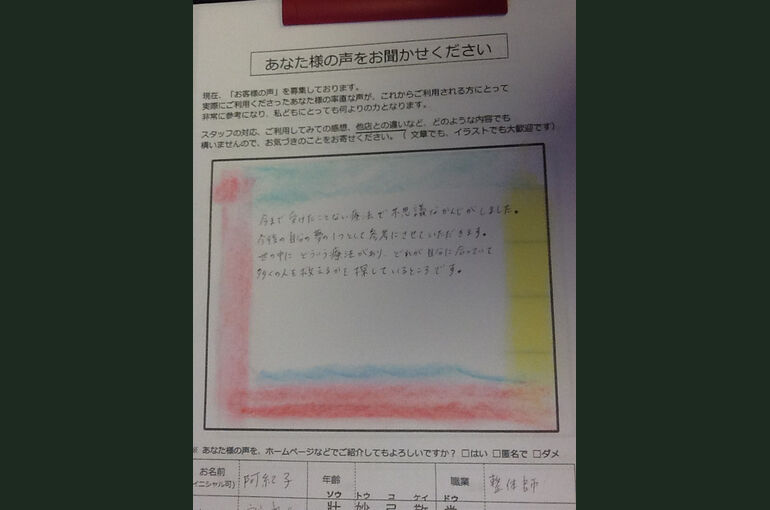 あなた様の声をお聞かせください
現在、「お客様の声」を募集しております。
実際にご利用くださったあなた様の率直な声が、これからご利用される方にとって
非常に参考になり、私どもにとっても何よりの力となります。
スタッフの対応、ご利用してみての感想、他店との違いなど、どのような内容でも
構いませんので、お気づきのことをお寄せください。（文章でも、イラストでも大歓迎です）
今まで受けたことない療法で不思議なかんじがしました。
今後の自分の夢の1つとして参考にさせていただきます。
世の中にどういう療法があり、どれが自分に合っていて
多くの人を救えるかを探しているところです。
※ あなた様の声を、ホームページなどでご紹介してもよろしいですか？ □はい □匿名で □ダメ
お名前 年齢 職業 整体師
イニシャル可)
ソウ トウ コ ケイ ドウ